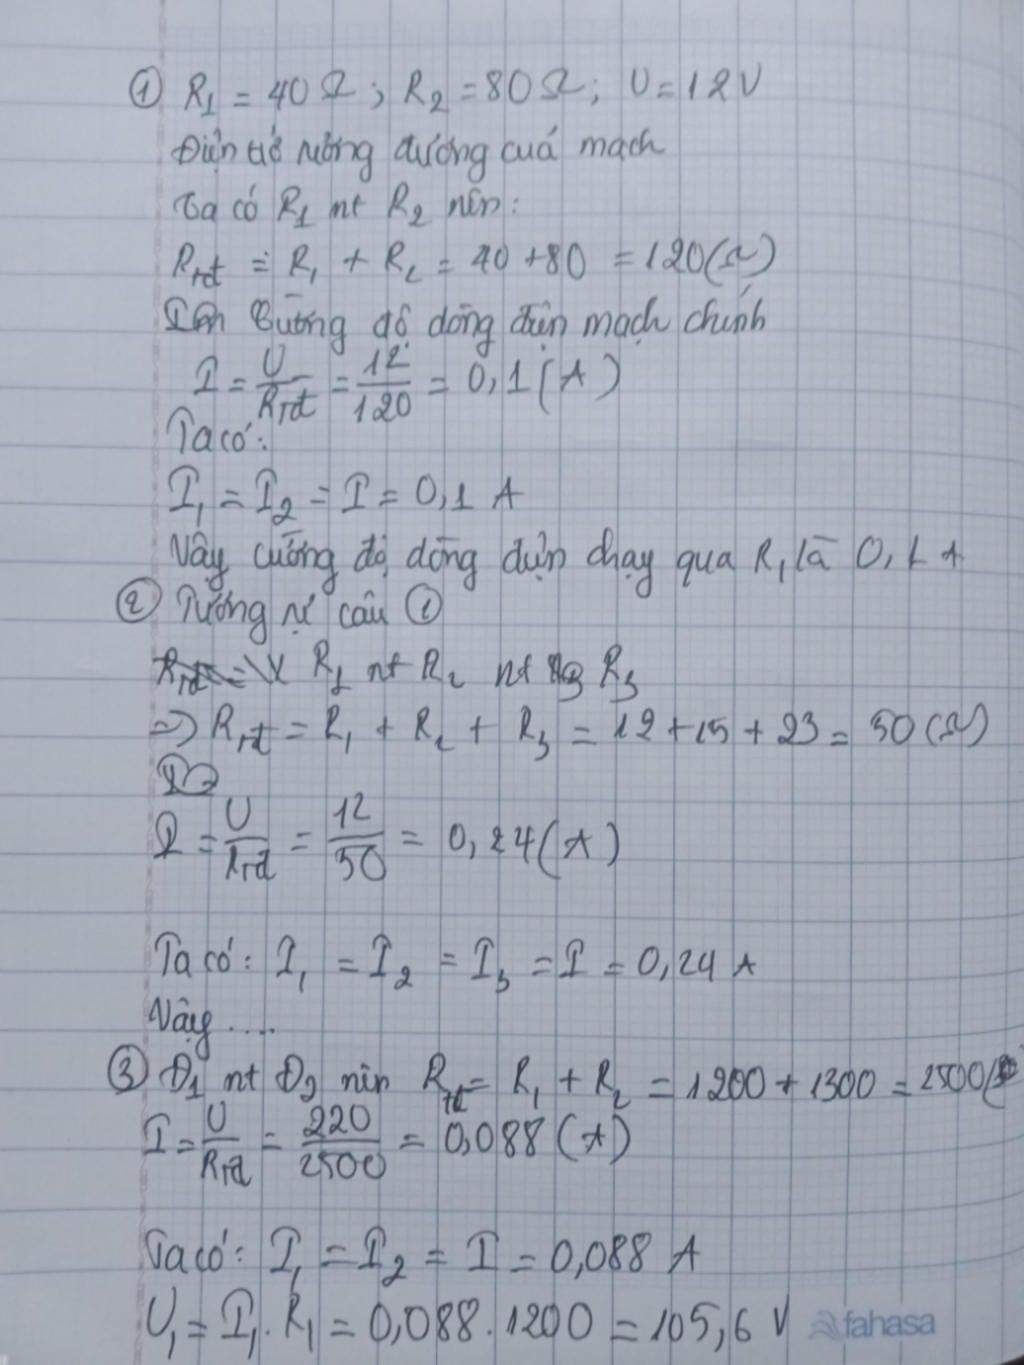 ① R₁ = 40Ω ; R₂ = 80Ω ; U = 12V
Điện trở tương đương của mạch
Ta có R₁ nt R₂ nên :
Rtđ = R₁ + R₂ = 40 + 80 = 120(Ω)
Cường độ dòng điện mạch chính
I = U/Rtđ = 12/120 = 0,1(A)
Ta có :
I₁ = I₂ = I = 0,1 A
Vậy cường độ dòng điện chạy qua R₁ là 0,1 A
② Tương tự câu ①
R₁ nt R₂ nt R₃
=> Rtđ = R₁ + R₂ + R₃ = 12 + 15 + 23 = 50(Ω)
I = U/Rtđ = 12/50 = 0,24(A)
Ta có : I₁ = I₂ = I₃ = I = 0,24 A
Vậy ....
③ Đ₁ nt Đ₂ nên Rtđ = R₁ + R₂ = 1200 + 1300 = 2500(
I = U/Rtđ = 220/2500 = 0,088(A)
Ta có : I₁ = I₂ = I = 0,088 A
U₁ = I₁ . R₁ = 0,088 . 1200 = 105,6 V
fahasa